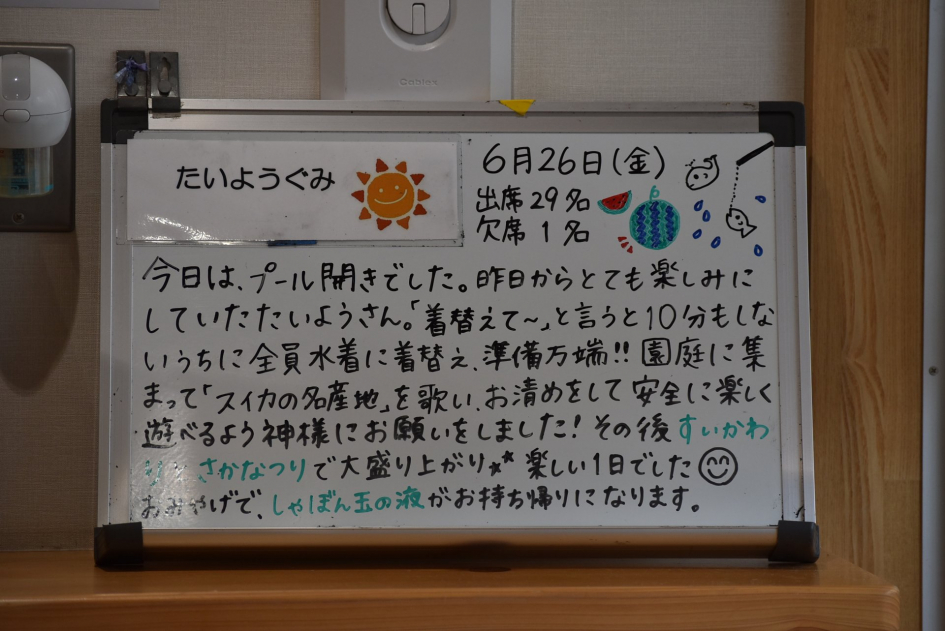 Qablex
たいようぐみ
6月26日(金)
出席29名
欠席 1名
今日は、プール開きでした。昨日からとても楽しみに
していたたいようさん。「着替えて～」と言うと10分もしな
いうちに全員水着に着替え、準備万端!! 園庭に集
まって「スイカの名産地」を歌い、お清めをして安全に楽しく
遊べるよう神様にお願いをしました! その後すいかわ
りとさかなつりで大盛り上がり 楽しい1日でした
おみやげで、しゃぼん玉の液がお持ち帰りになります。